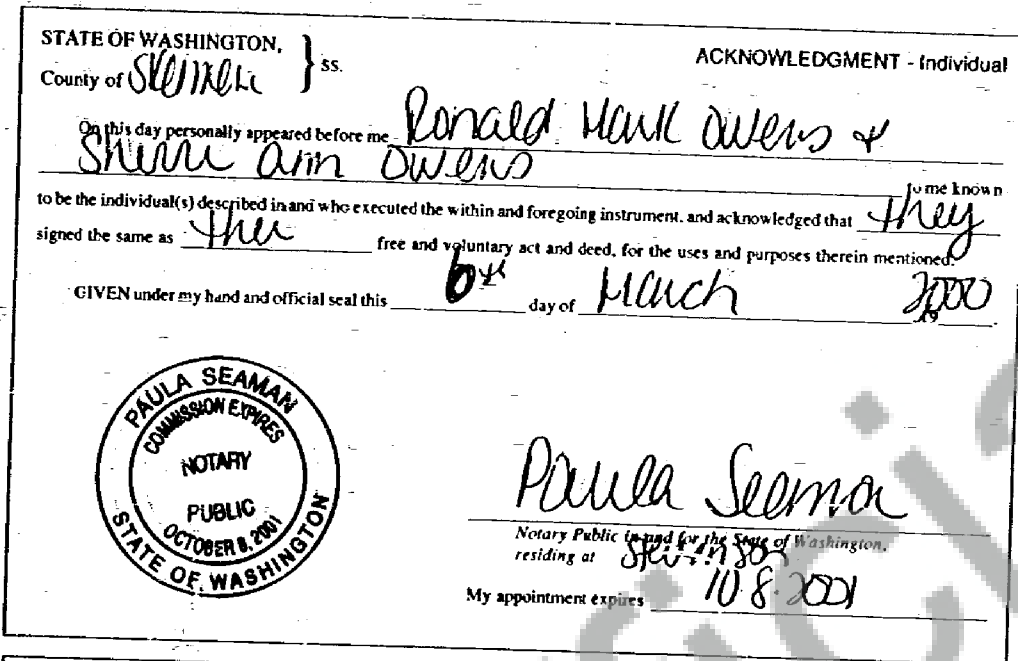 STATE OF WASHINGTON,
County of Skamania } ss.
ACKNOWLEDGMENT - Individual
On this day personally appeared before me Ronald Mark Owens &
Sherri Ann Owens
to me known
to be the individual(s) described in and who executed the within and foregoing instrument, and acknowledged that they
signed the same as their free and voluntary act and deed, for the uses and purposes therein mentioned.
GIVEN under my hand and official seal this 6th day of March 2000
19
PAULA SEAMAN
COMMISSION EXPIRES
NOTARY
PUBLIC
OCTOBER 8, 2001
STATE OF WASHINGTON
Paula Seaman
Notary Public in and for the State of Washington,
residing at Stevenson
My appointment expires 10.8.2001